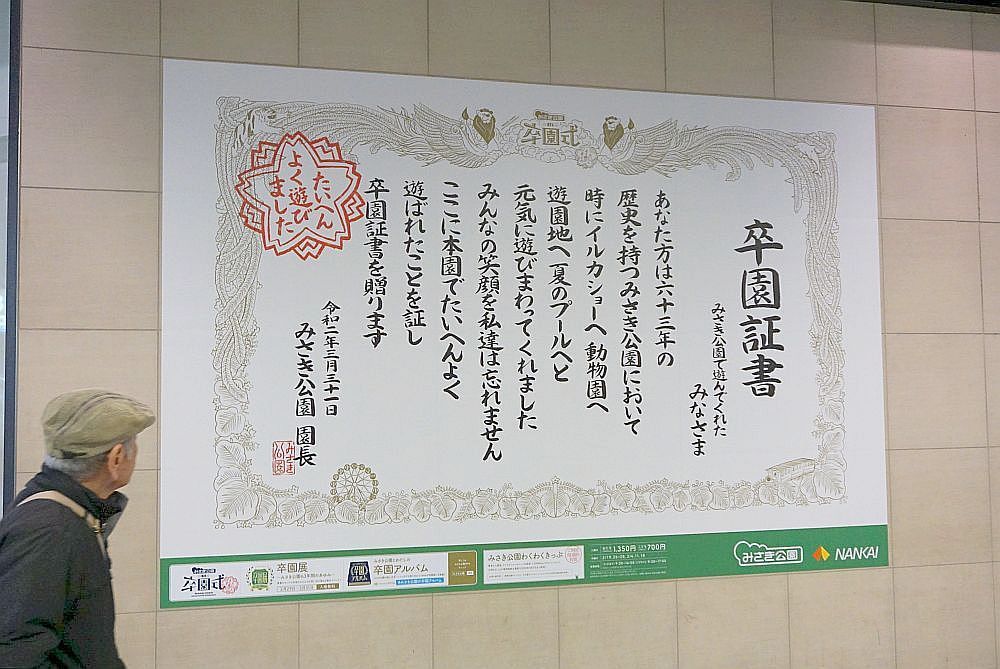 卒園式
卒園証書
みさき公園で遊んでくれた
みなさま
あなた方は六十三年の
歴史を持つみさき公園において
時にイルカショーへ動物園へ
遊園地へ夏のプールへと
元気に遊びまわってくれました
みんなの笑顔を私達は忘れません
ここに本園でたいへんよく
遊ばれたことを証し
卒園証書を贈ります
令和二年三月三十一日
みさき公園 園長
みさき公園
たいへん
よく遊び
ました
卒園式
卒園展
卒園アルバム
みさき公園わくわくきっぷ
1,350円
700円
みさき公園
NANKAI